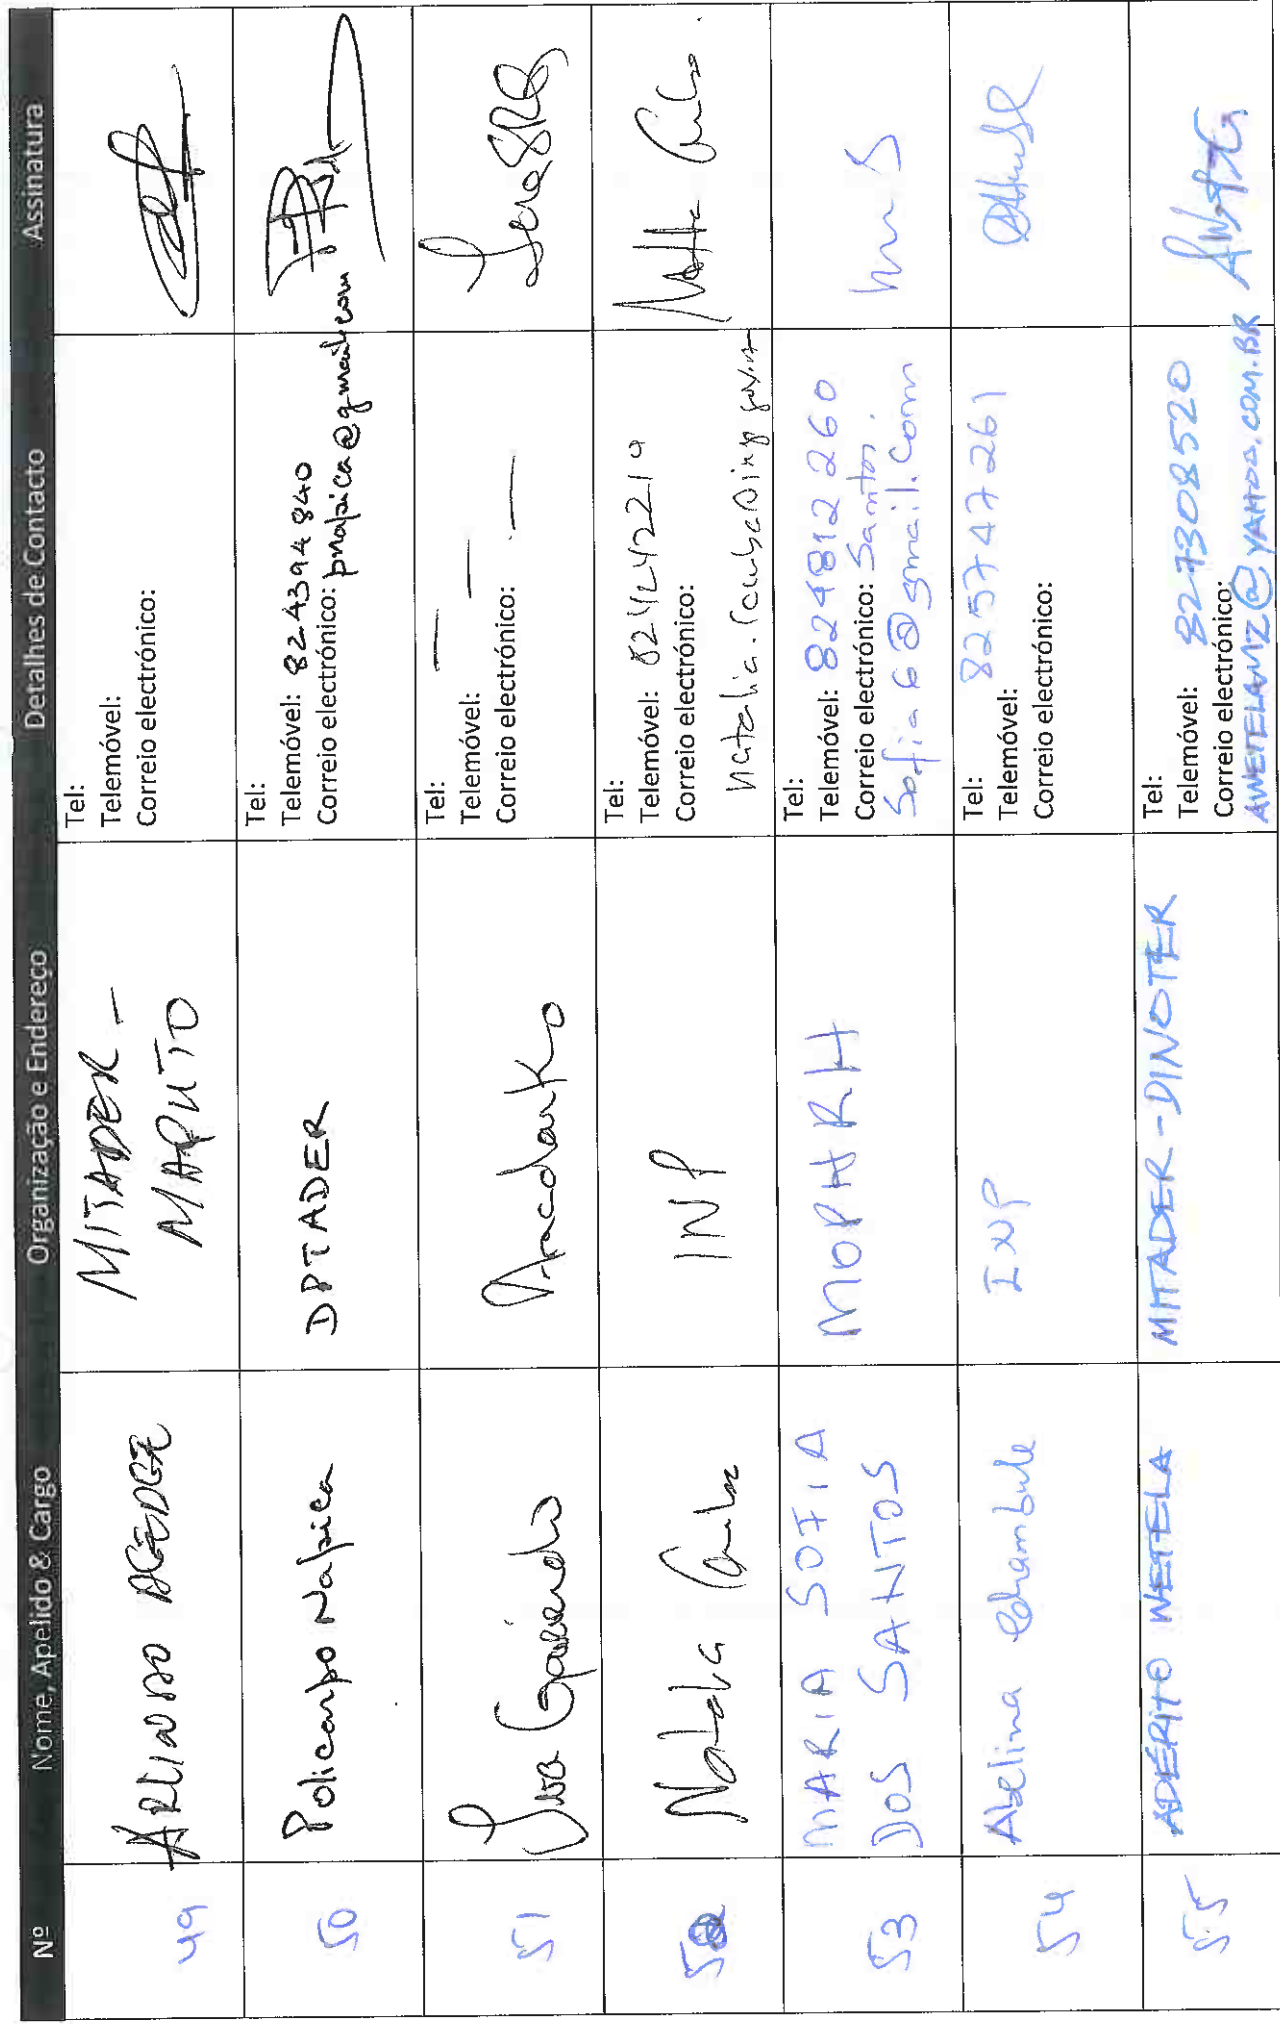 Nº Nome, Apelido & Cargo Organização e Endereço Detalhes de Contacto Assinatura
49
MITADER -
MAPUTO
Tel:
Telemóvel:
Correio electrónico:
50
Policarpo Napica
DPTADER
Tel:
Telemóvel: 824394840
Correio electrónico: pnapica@gmail.com
51
Tel: —
Telemóvel: —
Correio electrónico: —
52
Natalia
INP
Tel:
Telemóvel: 824242219
Correio electrónico:
53
MARIA SOFIA
DOS SANTOS
MOPHRH
Tel:
Telemóvel: 824812260
Correio electrónico: Santos.
Sofia6@gmail.com
54
Abelina Chambule
INP
Tel:
Telemóvel: 825747261
Correio electrónico:
55
ADÉRITO WETELA
MITADER-DINOTER
Tel:
Telemóvel: 827308520
Correio electrónico:
AWETELAMZ@YAHOO.COM.BR